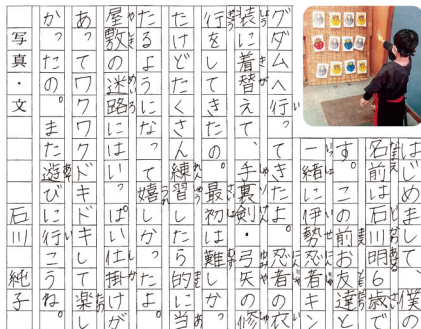 はじめまして、僕の
名前は石川明6歳で
す。この前お友達と
一緒に伊勢忍者キン
グダムへ行ってきたよ。忍者の衣
装に着替えて、手裏剣・弓矢の修
行をしてきたの。最初は難しかっ
たけどたくさん練習したら的に当
たるようになって嬉しかったよ。
屋敷の迷路にはいっぱい仕掛けが
あってワクワクドキドキして楽し
かったの。また遊びに行こうね。
写真・文 石川 純子